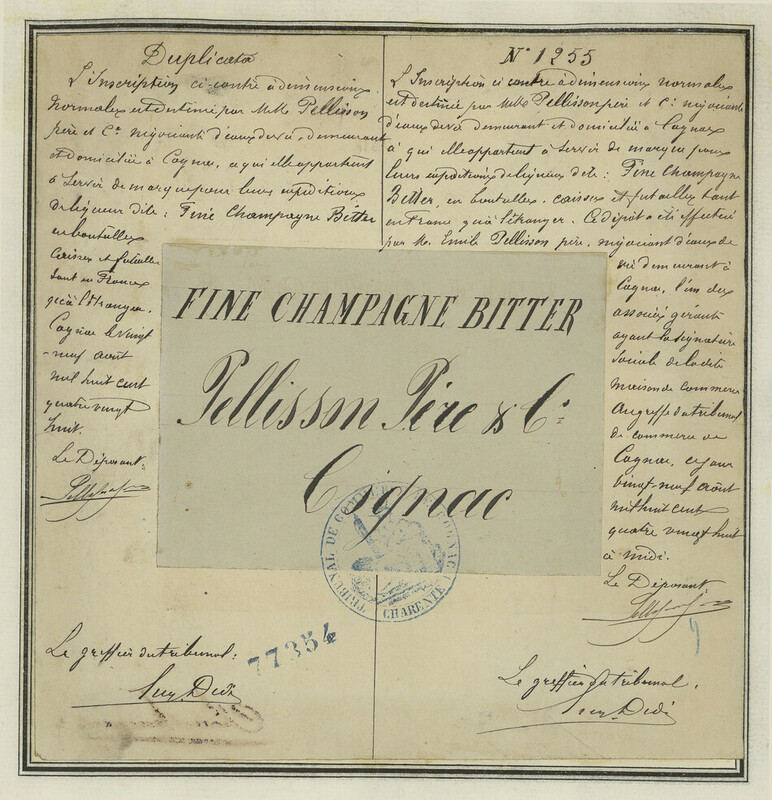 Duplicata
L'Inscription ci-contre à dimensions
normales est destinée par MMrs Pellisson
père et Cie négociants d'eaux de vie, demeurant
et domiciliés à Cognac, à qui elle appartient
à servir de marque pour leurs expéditions
de liqueur dite : Fine Champagne Bitter
en bouteilles
caisses et futailles
tant en France
qu'à l'étranger.
Cognac le vingt
-neuf août
mil huit cent
quatre vingt
huit.
Le Déposant :
Le greffier du tribunal :
77354
N° 1255
L'Inscription ci contre à dimensions normales
est destinée par MMrs Pellisson père et Cie négociants
d'eaux de vie demeurant et domiciliés à Cognac
à qui elle appartient à servir de marque pour
leurs expéditions de liqueur dite : Fine Champagne
Bitter, en bouteilles, caisses et futailles tant
en France qu'à l'étranger. Ce dépôt a été effectué
par Mr. Emile Pellisson père, négociant d'eaux de
vie demeurant à
Cognac, l'un des
associés gérants
ayant la signature
sociale de la dite
maison de commerce
Au greffe du tribunal
de commerce de
Cognac, ce jour
vingt-neuf août
mil huit cent
quatre vingt huit
à midi.
Le Déposant
Le greffier du tribunal.
FINE CHAMPAGNE BITTER
Pellisson Père & Cie
Cognac
TRIBUNAL DE COMMERCE COGNAC
CHARENTE